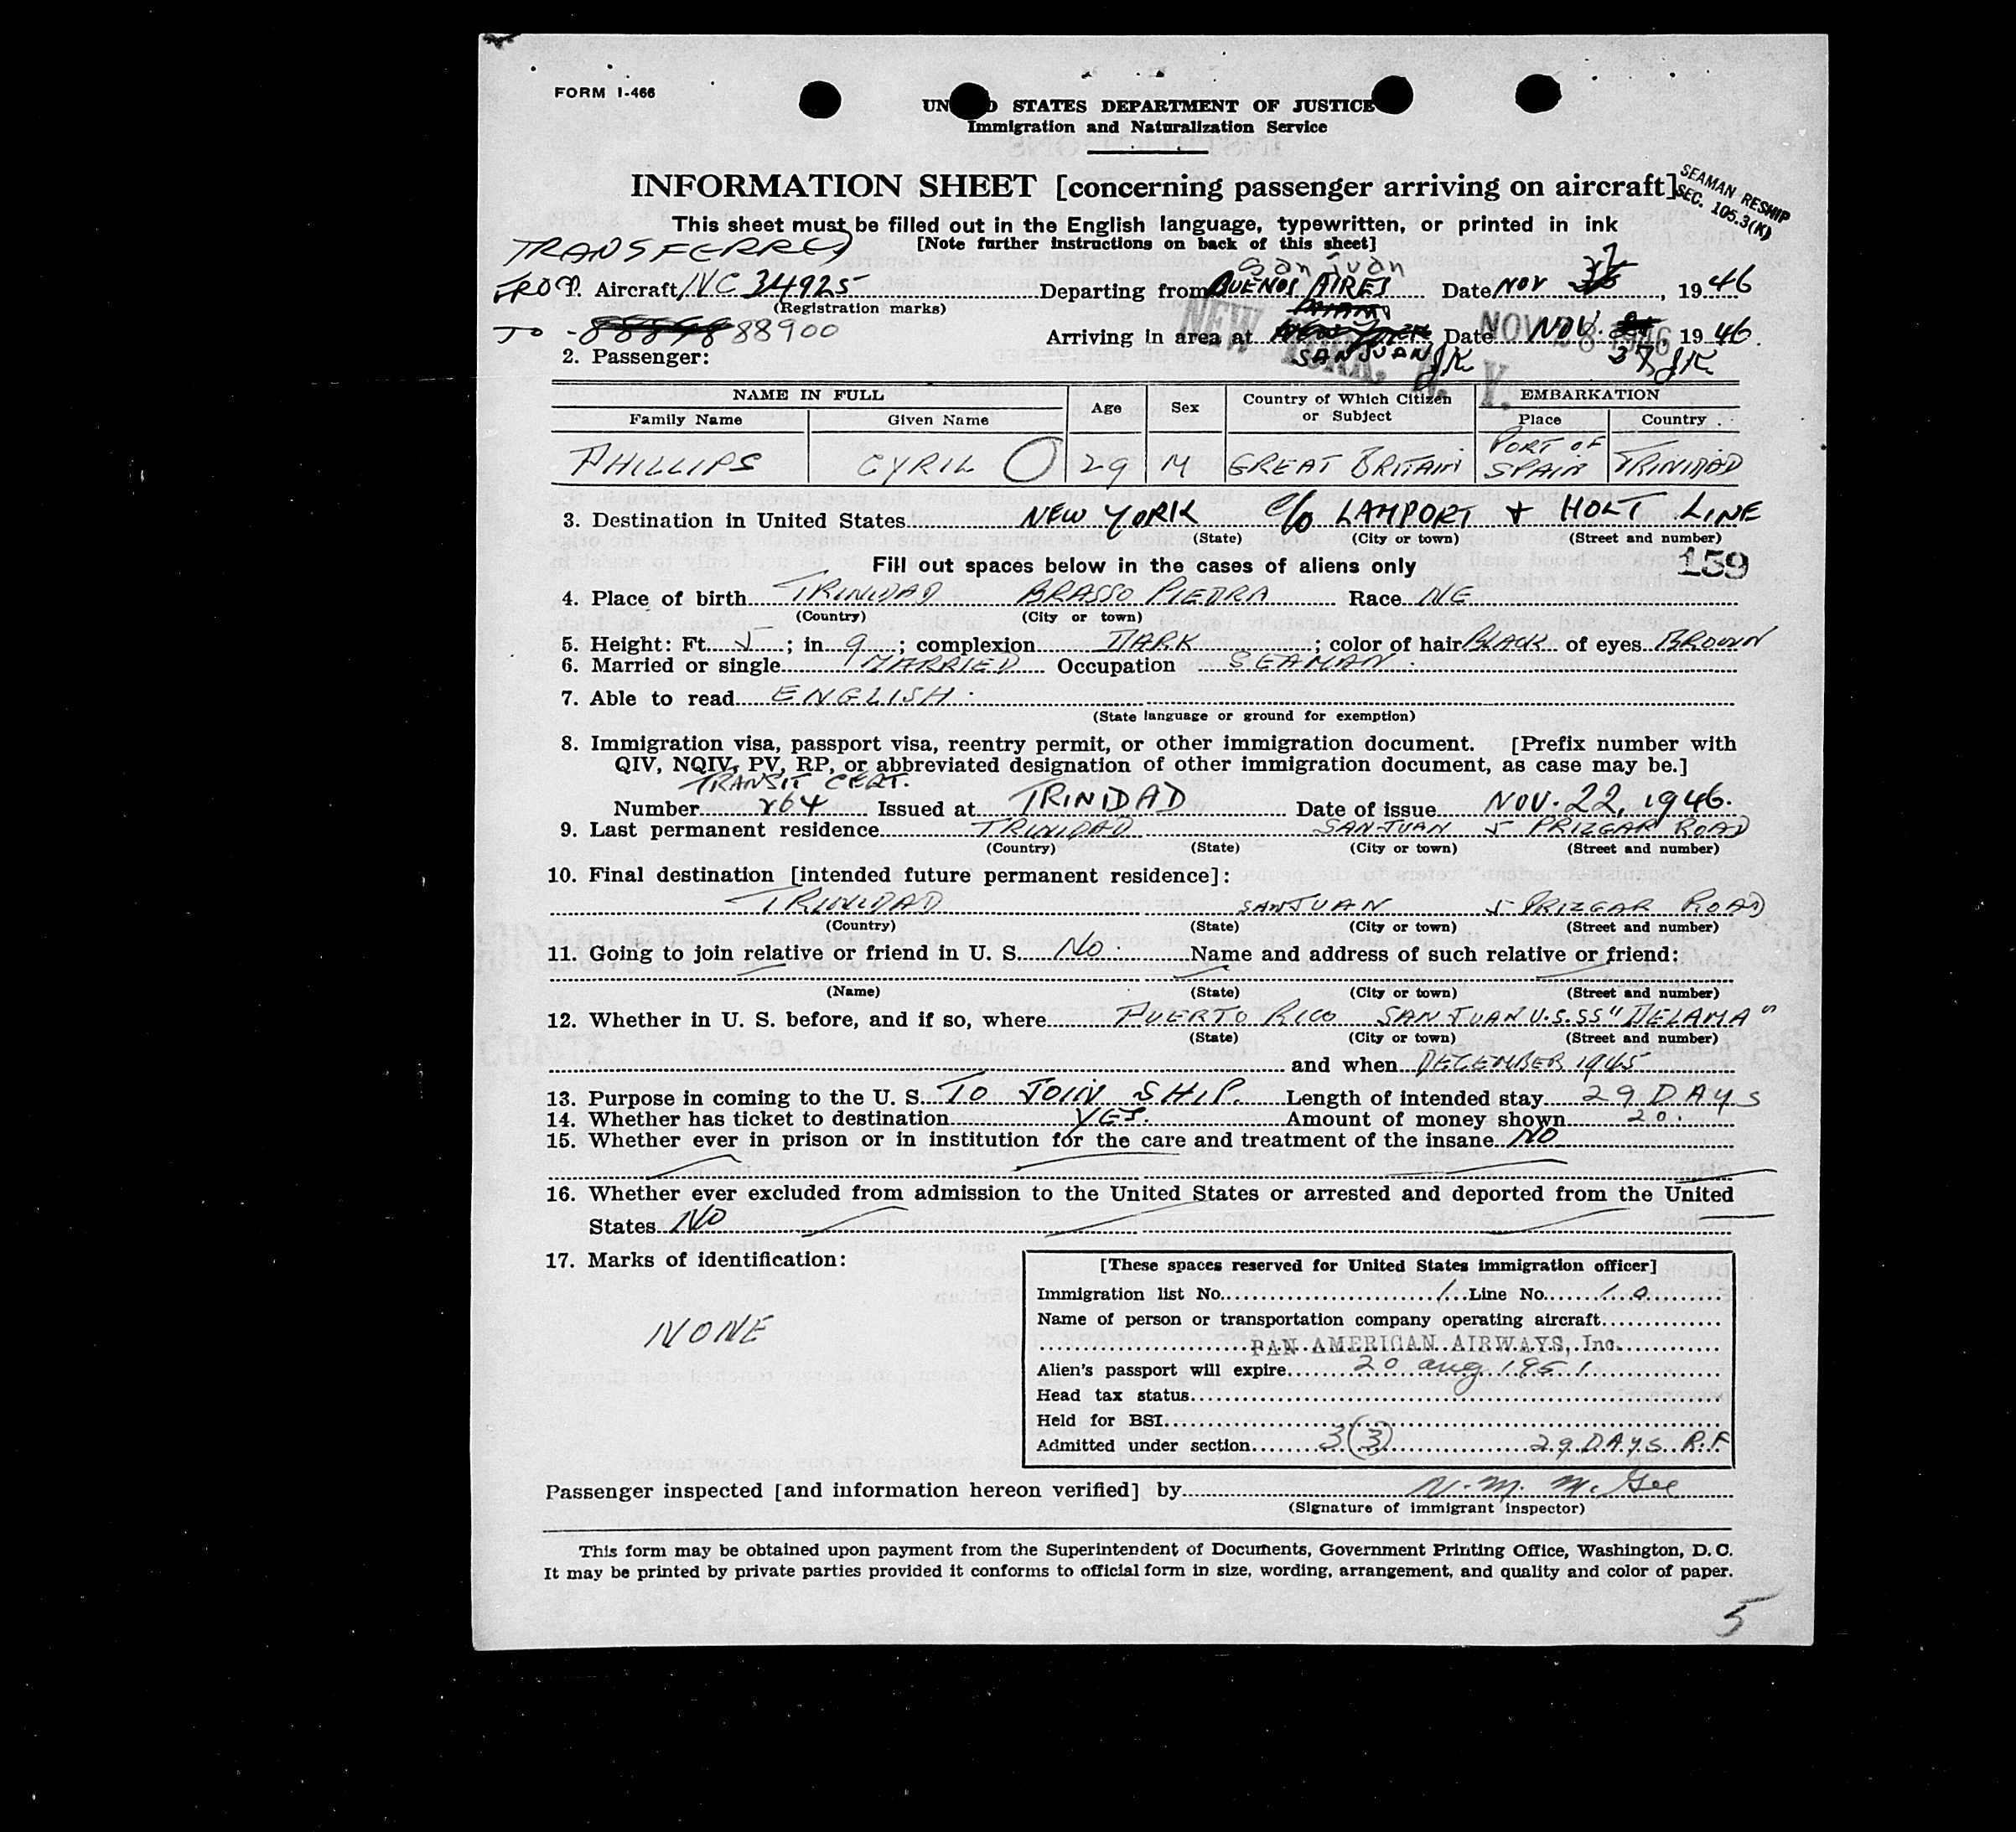 FORM I-466
UNITED STATES DEPARTMENT OF JUSTICE
Immigration and Naturalization Service
INFORMATION SHEET [concerning passenger arriving on aircraft]
SEAMAN RESHIP
SEC. 105.3(K)
This sheet must be filled out in the English language, typewritten, or printed in ink
[Note further instructions on back of this sheet]
TRANSFERRED
San Juan
FROM 1. Aircraft NC 34925 Departing from BUENOS AIRES Date NOV 27, 1946
(Registration marks)
TO 88900 Arriving in area at Date NOV. 1946.
NEW YORK, N. Y.
NOV 28 1946
2. Passenger: SAN JUAN JK 27 JK
NAME IN FULL Age Sex Country of Which Citizen or Subject EMBARKATION
Family Name Given Name Place Country
PHILLIPS CYRIL O 29 M GREAT BRITAIN PORT OF SPAIN TRINIDAD
3. Destination in United States NEW YORK c/o LAMPORT + HOLT LINE
(State) (City or town) (Street and number)
Fill out spaces below in the cases of aliens only 159
4. Place of birth TRINIDAD BRASSO PIEDRA Race NE
(Country) (City or town)
5. Height: Ft. 5; in 9; complexion DARK; color of hair BLACK of eyes BROWN
6. Married or single MARRIED Occupation SEAMAN
7. Able to read ENGLISH.
(State language or ground for exemption)
8. Immigration visa, passport visa, reentry permit, or other immigration document. [Prefix number with
QIV, NQIV, PV, RP, or abbreviated designation of other immigration document, as case may be.]
TRANSIT CERT.
Number 264 Issued at TRINIDAD Date of issue NOV. 22, 1946.
9. Last permanent residence TRINIDAD SAN JUAN 5 PRIZGAR ROAD
(Country) (State) (City or town) (Street and number)
10. Final destination [intended future permanent residence]:
TRINIDAD SAN JUAN 5 PRIZGAR ROAD
(Country) (State) (City or town) (Street and number)
11. Going to join relative or friend in U. S. NO. Name and address of such relative or friend:
(Name) (State) (City or town) (Street and number)
12. Whether in U. S. before, and if so, where PUERTO RICO SAN JUAN U.S. SS "DELAMA"
(State) (City or town) (Street and number)
and when DECEMBER 1945
13. Purpose in coming to the U. S. TO JOIN SHIP. Length of intended stay 29 DAYS
14. Whether has ticket to destination YES. Amount of money shown 20.
15. Whether ever in prison or in institution for the care and treatment of the insane NO
16. Whether ever excluded from admission to the United States or arrested and deported from the United
States NO
17. Marks of identification:
NONE
[These spaces reserved for United States immigration officer]
Immigration list No. 1 Line No. 10
Name of person or transportation company operating aircraft
PAN AMERICAN AIRWAYS, Inc.
Alien's passport will expire 20 Aug 1951
Head tax status
Held for BSI
Admitted under section 3(3) 29 DAYS R.F
Passenger inspected [and information hereon verified] by N. M. McGee
(Signature of immigrant inspector)
This form may be obtained upon payment from the Superintendent of Documents, Government Printing Office, Washington, D. C.
It may be printed by private parties provided it conforms to official form in size, wording, arrangement, and quality and color of paper.
5